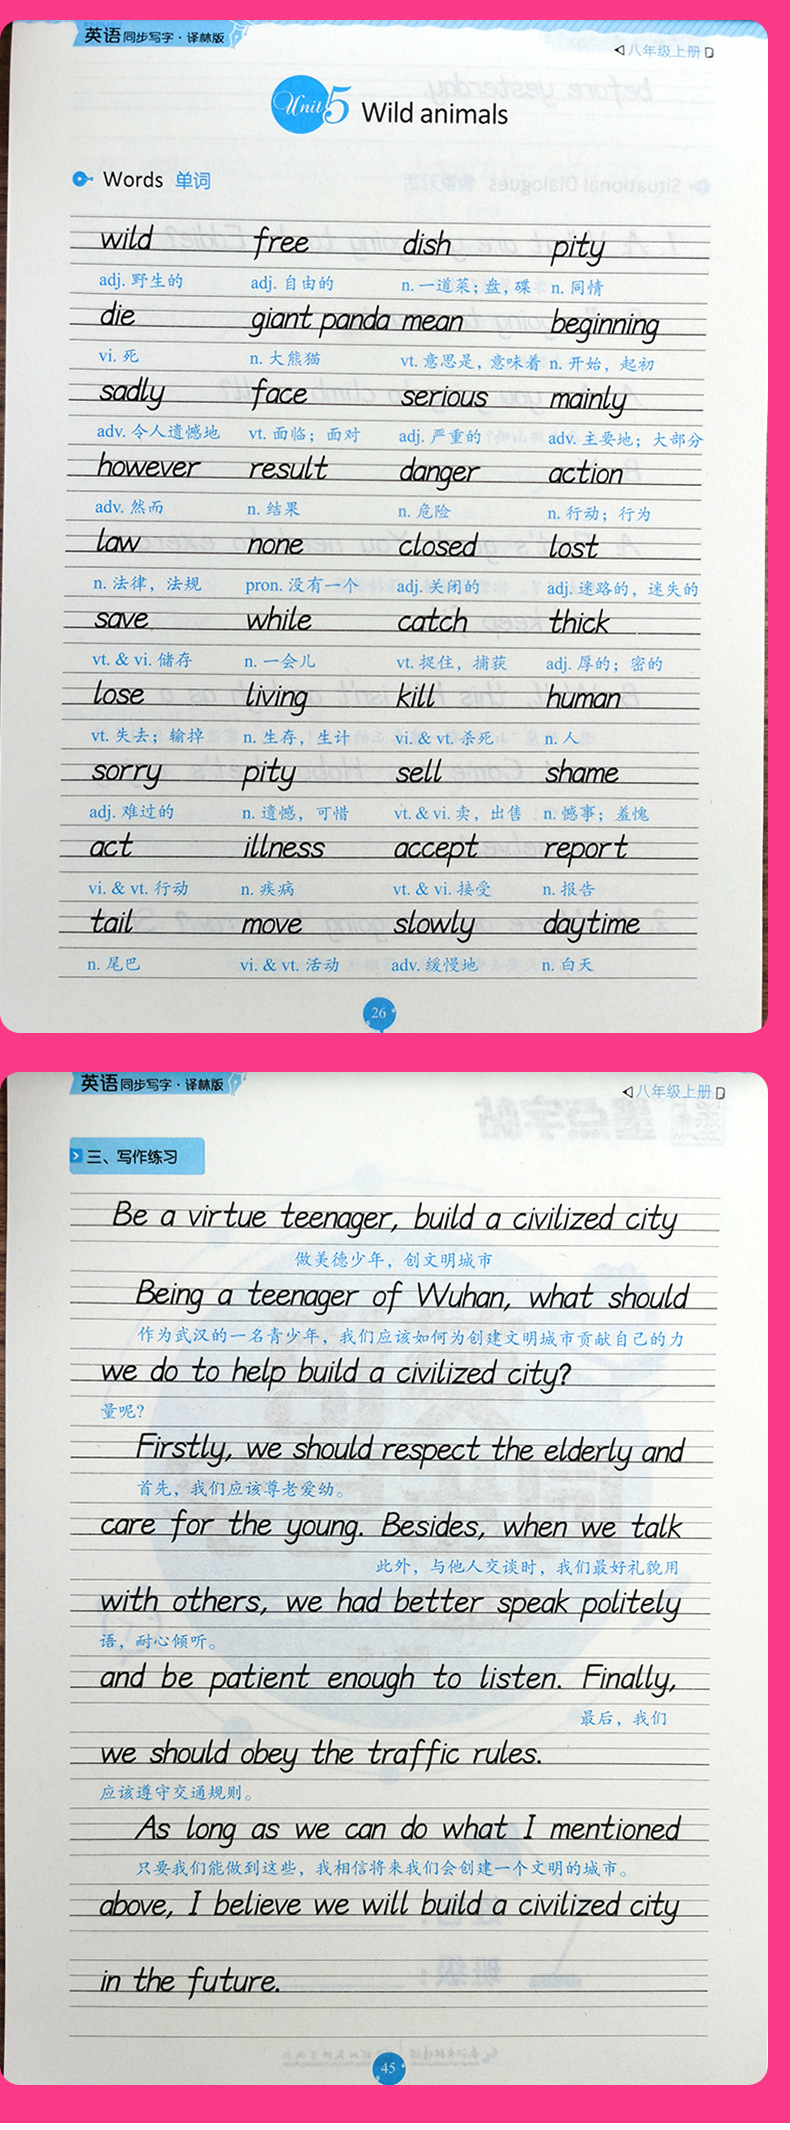 英语同步写字·译林版
八年级上册
Unit 5 Wild animals
Words 单词
wild free dish pity
adj. 野生的 adj. 自由的 n. 一道菜；盘，碟 n. 同情
die giant panda mean beginning
vi. 死 n. 大熊猫 vt. 意思是，意味着 n. 开始，起初
sadly face serious mainly
adv. 令人遗憾地 vt. 面临；面对 adj. 严重的 adv. 主要地；大部分
however result danger action
adv. 然而 n. 结果 n. 危险 n. 行动；行为
law none closed lost
n. 法律，法规 pron. 没有一个 adj. 关闭的 adj. 迷路的，迷失的
save while catch thick
vt. & vi. 储存 n. 一会儿 vt. 捉住，捕获 adj. 厚的；密的
lose living kill human
vt. 失去；输掉 n. 生存，生计 vi. & vt. 杀死 n. 人
sorry pity sell shame
adj. 难过的 n. 遗憾，可惜 vt. & vi. 卖，出售 n. 憾事；羞愧
act illness accept report
vi. & vt. 行动 n. 疾病 vt. & vi. 接受 n. 报告
tail move slowly daytime
n. 尾巴 vi. & vt. 活动 adv. 缓慢地 n. 白天
26
英语同步写字·译林版
八年级上册
三、写作练习
Be a virtue teenager, build a civilized city
做美德少年，创文明城市
Being a teenager of Wuhan, what should
作为武汉的一名青少年，我们应该如何为创建文明城市贡献自己的力
we do to help build a civilized city?
量呢?
Firstly, we should respect the elderly and
首先，我们应该尊老爱幼。
care for the young. Besides, when we talk
此外，与他人交谈时，我们最好礼貌用
with others, we had better speak politely
语，耐心倾听。
and be patient enough to listen. Finally,
最后，我们
we should obey the traffic rules.
应该遵守交通规则。
As long as we can do what I mentioned
只要我们能做到这些，我相信将来我们会创建一个文明的城市。
above, I believe we will build a civilized city
in the future.
45